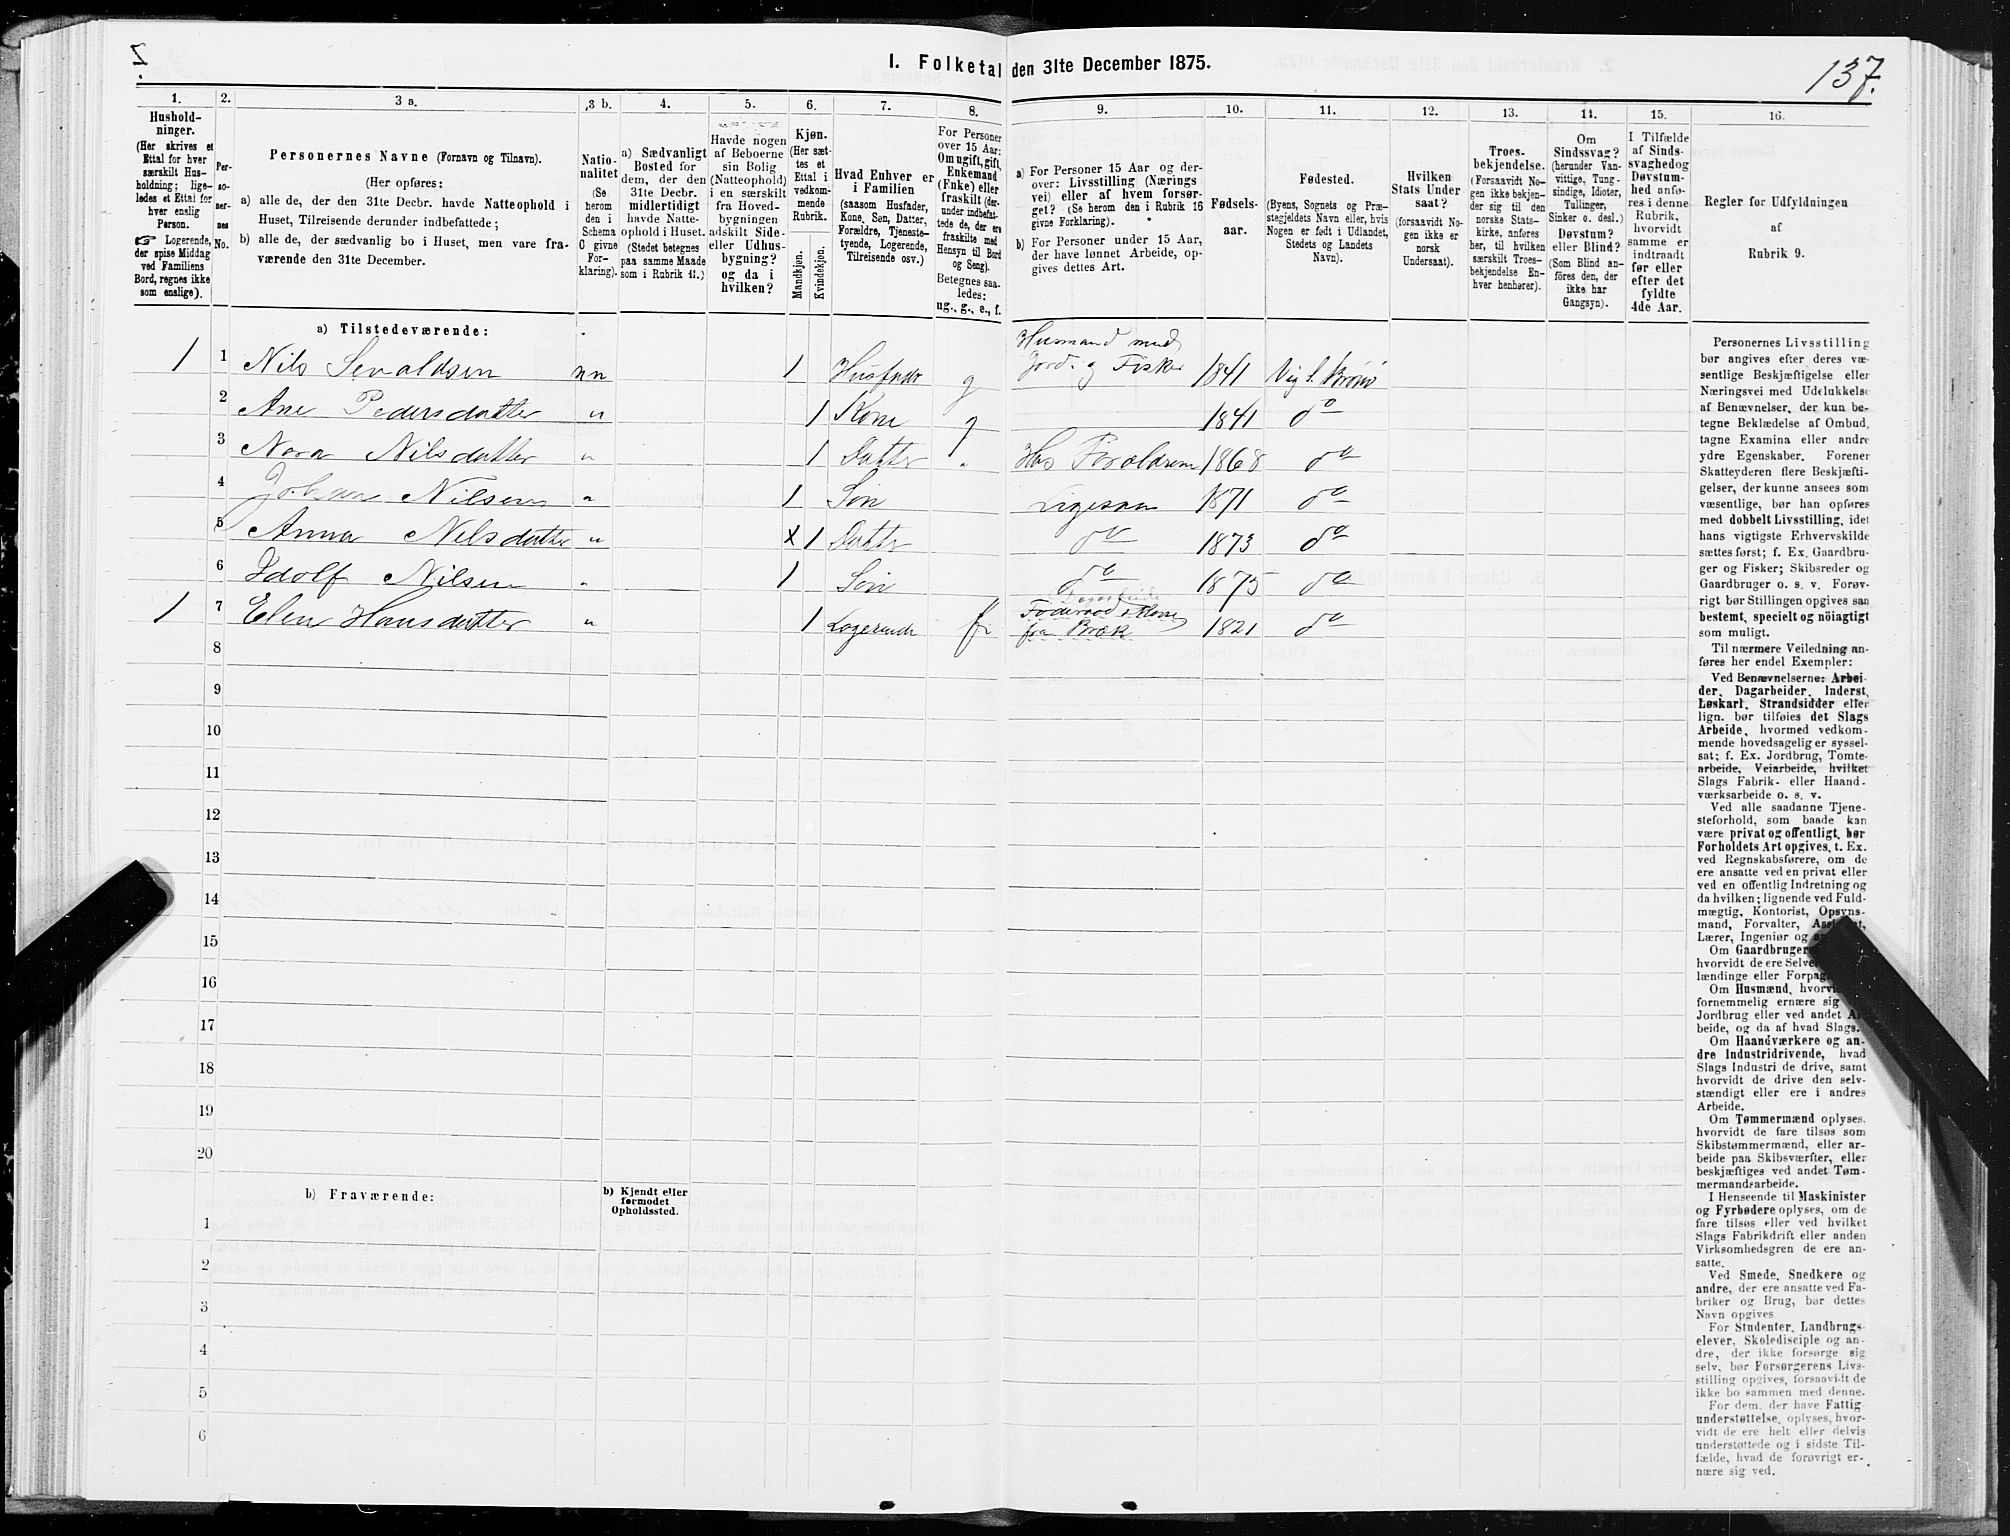 1. Folketal den 31te December 1875.
137.
1.
2.
3 a.
3 b.
4.
5.
6.
7.
8.
9.
10.
11.
12.
13.
14.
15.
16.
Hushold-
ninger.
(Her skrives et
Ettal for hver
særskilt Hus-
holdning; lige-
ledes et Ettal for
hver enslig
Person.
☞ Logerende,
der spise Middag
ved Familiens
Bord, regnes ikke
som enslige).
Per-
so-
ner-
nes
No.
Personernes Navne (Fornavn og Tilnavn).
(Her opføres:
a) alle de, der den 31te Decbr. havde Natteophold i
Huset, Tilreisende derunder indbefattede;
b) alle de, der sædvanlig bo i Huset, men vare fra-
værende den 31te December.
Natio-
nalitet
(Se
herom
den i
Schema
C givne
For-
klaring).
a) Sædvanligt
Bosted for
dem, der den
31te Decbr.
midlertidigt
havde Natte-
ophold i Huset.
(Stedet betegnes
paa samme Maade
som i Rubrik 11.)
Havde nogen
af Beboerne
sin Bolig
(Natteophold)
i en særskilt
fra Hoved-
bygningen
adskilt Side-
eller Udhus-
bygning?
og da i
hvilken?
Kjøn.
(Her sæt-
tes et
Ettal i
vedkom-
mende
Rubrik.
Mandkjøn.
Kvindekjøn.
Hvad Enhver er
i Familien
(saasom Husfader,
Kone, Søn, Datter,
Forældre, Tjeneste-
tyende, Logerende,
Tilreisende osv.)
For Personer
over 15 Aar:
Om ugift, gift,
Enkemand
(Enke) eller
fraskilt (der-
under indbefat-
tede de, der ere
fraskilte med
Hensyn til Bord
og Seng).
Betegnes saa-
ledes:
ug., g., e., f.
a) For Personer 15 Aar og der-
over: Livsstilling (Nærings
vei) eller af hvem forsør-
get? (Se herom den i Rubrik 16
givne Forklaring).
b) For Personer under 15 Aar,
der have lønnet Arbeide, op-
gives dettes Art.
Fødsels-
aar.
Fødested.
(Byens, Sognets og Præ-
stegjeldets Navn eller, hvis
Nogen er født i Udlandet,
Stedets og Landets
Navn).
Hvilken
Stats Under
saat?
(forsaavidt No-
gen ikke er
norsk
Undersaat).
Troes-
bekjendelse.
(Forsaavidt No-
gen ikke bekjen-
der sig til den
norske Stats-
kirke, anføres
her, til hvilken
særskilt Troes-
bekjendelse En-
hver henhører).
Om
Sindssvag?
(herunder Van-
vittige, Tung-
sindige, Idioter,
Tullinger,
Sinker o. desl.)
Døvstum?
eller Blind?
(Som Blind an-
föres den, der
ikke har
Gangsyn).
I Tilfælde
af Sinds-
svaghed og
Døvstum-
hed anfø-
res i denne
Rubrik,
hvorvidt
samme er
indtraadt
før eller
efter det
fyldte
4de Aar.
Regler for Udfyldningen
af
Rubrik 9.
a) Tilstedeværende:
1 1 Nils Sevaldsen nn 1 Husfader g Husmand med Jord og Fisker 1841 Vig S. Brønø
2 Ane Pedersdatter " 1 Kone g 1841 do
3 Nora Nilsdatter " 1 Datter " Hos Forældrene 1868 do
4 Johan Nilsen " 1 Søn Ligesaa 1871 do
5 Anna Nilsdatter " x 1 Datter do 1873 do
6 Idolf Nilsen " 1 Søn do 1875 do
1 7 Elen Hansdatter " 1 Logerende f Føderaad fra 1821 do
8
9
10
11
12
13
14
15
16
17
18
19
20
b) Fraværende:
b) Kjendt eller
formodet
Opholdssted.
1
2
3
4
5
6
Personernes Livsstilling
bør angives efter deres væ-
sentlige Beskjæftigelse eller
Næringsvei med Udelukkelse
af Benævnelser, der kun be-
tegne Beklædelse af Ombud,
tagne Examina eller andre
ydre Egenskaber. Forener
Skatteyderen flere Beskjæfti-
gelser, der kunne ansees som
væsentlige, bør han opføres
med dobbelt Livsstilling, idet
hans vigtigste Erhvervskilde
sættes først; f. Ex. Gaardbru-
ger og Fisker; Skibsreder og
Gaardbruger o. s. v. Forøv-
rigt bør Stillingen opgives saa
bestemt, specielt og nöiagtigt
som muligt.
Til nærmere Veiledning an-
føres her endel Exempler:
Ved Benævnelserne: Arbei-
der, Dagarbeider, Inderst,
Løskarl, Strandsidder eller
lign. bør tilføies det Slags
Arbeide, hvormed vedkom-
mende hovedsagelig er syssel-
sat; f. Ex. Jordbrug, Tomte-
arbeide, Veiarbeide, hvilket
Slags Fabrik- eller Haand-
værksarbeide o. s. v.
Ved alle saadanne Tjene-
steforhold, som baade kan
være privat og offentligt, bør
Forholdets Art opgives, t. Ex.
ved Regnskabsførere, om de
ere ansatte ved en privat eller
ved en offentlig Indretning og
da hvilken; lignende ved Fuld-
mægtig, Kontorist, Opsyns-
mand, Forvalter,
Lærer, Ingeniør og
Om Gaardbrugere
hvorvidt de ere
lændinge eller
Om Husmænd,
fornemmelig ernære sig
Jordbrug eller ved andet
beide, og da af hvad Slags.
Om Haandværkere og an-
dre Industridrivende, hvad
Slags Industri de drive, samt
hvorvidt de drive den selv-
stændigt eller ere i andres
Arbeide.
Om Tømmermænd oplyses,
hvorvidt de fare tilsøs som
Skibstømmermænd, eller ar-
beide paa Skibsværfter, eller
beskjæftiges ved andet Tøm-
mermandsarbeide.
I Henseende til Maskinister
og Fyrbødere oplyses, om de
fare tilsøs eller ved hvilket
Slags Fabrikdrift eller anden
Virksomhedsgren de ere an-
satte.
Ved Smede, Snedkere og
andre, der ere ansatte ved Fa-
briker og Brug, bør dettes
Navn opgives
For Studenter, Landbrugs-
elever, Skoledisciple og an-
dre, der ikke forsørge sig
selv, bør Forsørgerens Livs-
stilling opgives, forsaavidt de
ikke bo sammen med denne.
For dem, der have Fattig-
understøttelse, oplyses, hvor-
vidt de ere helt eller delvis
understøttede og i sidste Til-
fælde, hvad de forøvrigt er-
nære sig ved.